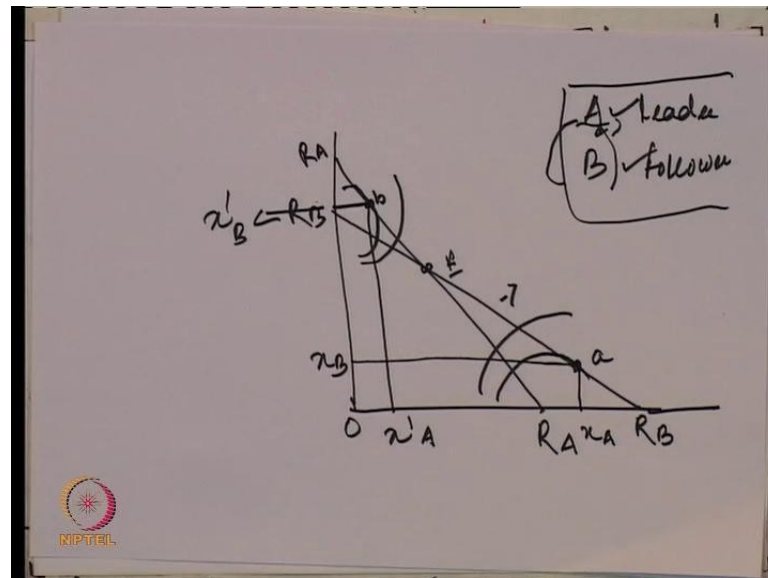 A Leader
B Follower
RA
x'B RB
b
E
a
xB
O x'A RA xA RB
NPTEL